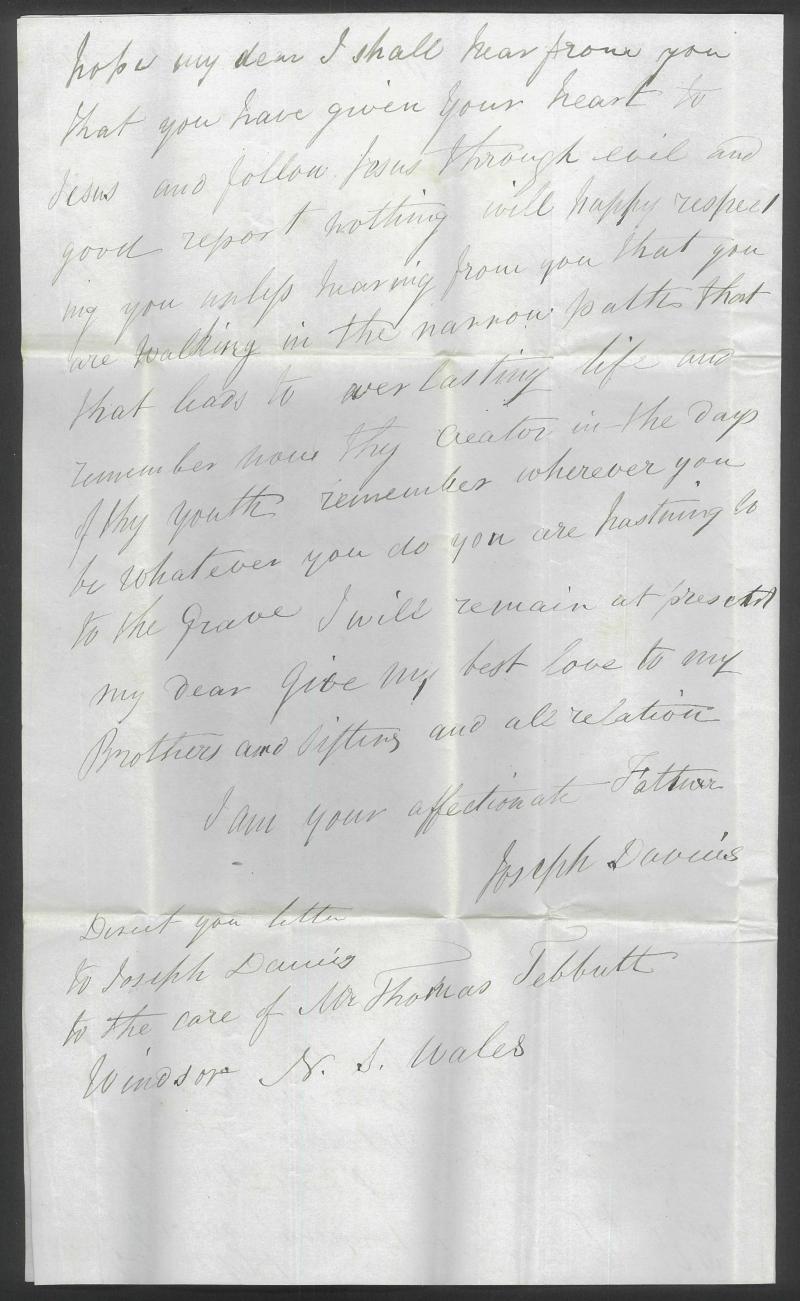 hope my dear I shall hear from you
that you have given your heart to
Jesus and follow Jesus through evil and
good report nothing will happy respect
ing you unless hearing from you that you
are walking in the narrow path that
that leads to everlasting life and
remember now thy Creator in the days
of thy youth remember wherever you
be whatever you do you are hastning to
to the Grave I will remain at present
my dear Give my best love to my
Brothers and Sisters and all relation
I am your affectionate Father
Joseph Davies
Direct you letter
to Joseph Davies
to the care of Mr Thomas Tebbutt
Windsor N. S. Wales